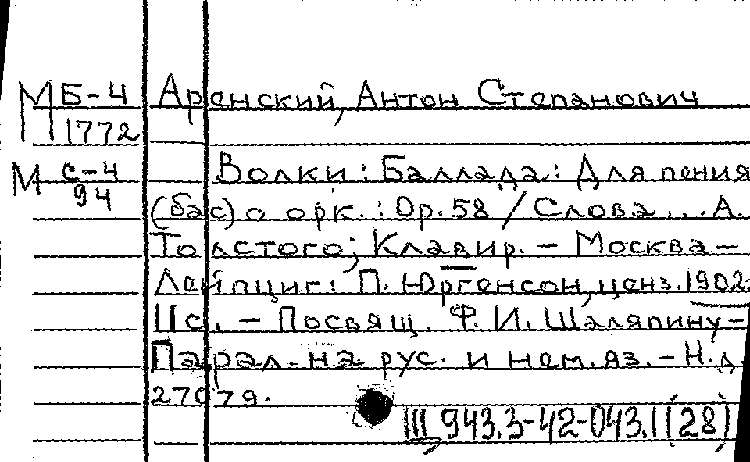 М Б-4 Аренский, Антон Степанович
1772
М С-4 Волки: Баллада: Для пения
94 (бас) с орк.: Ор. 58 / Слова ... А.
Толстого; Клавир. - Москва -
Лейпциг: П. Юргенсон, ценз. 1902
11с. - Посвящ. Ф. И. Шаляпину -
Парал. на рус. и нем. яз. - Н. д.
27079.
Ш 943.3-42-043.1(28)